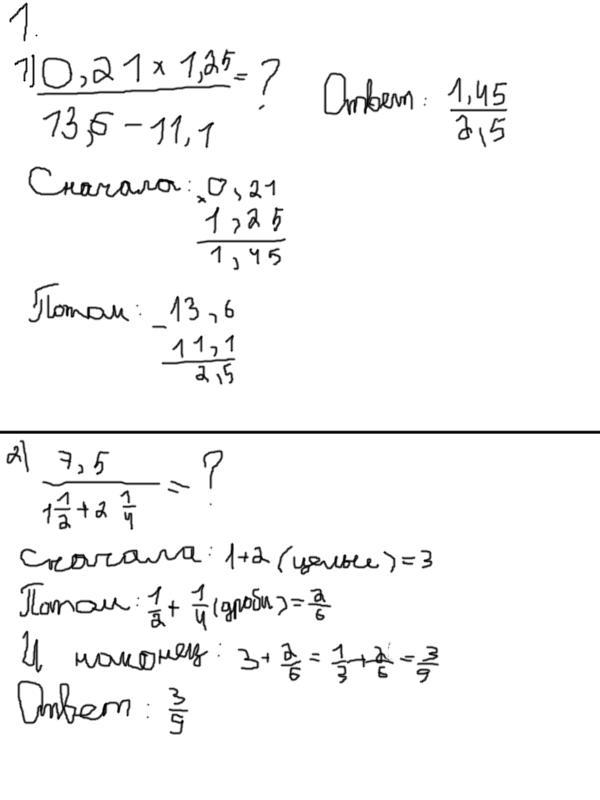 1.
1) 0,21 × 1,25 = ?
13,6 - 11,1
Ответ: 1,45
2,5
Сначала: × 0,21
1,25
1,45
Потом: - 13,6
11,1
2,5
2) 7,5 = ?
1 1/2 + 2 1/4
Сначала: 1+2 (целые) = 3
Потом: 1/2 + 1/4 (дроби) = 2/6
И наконец: 3 + 2/6 = 1/3 + 2/6 = 3/9
Ответ: 3/9